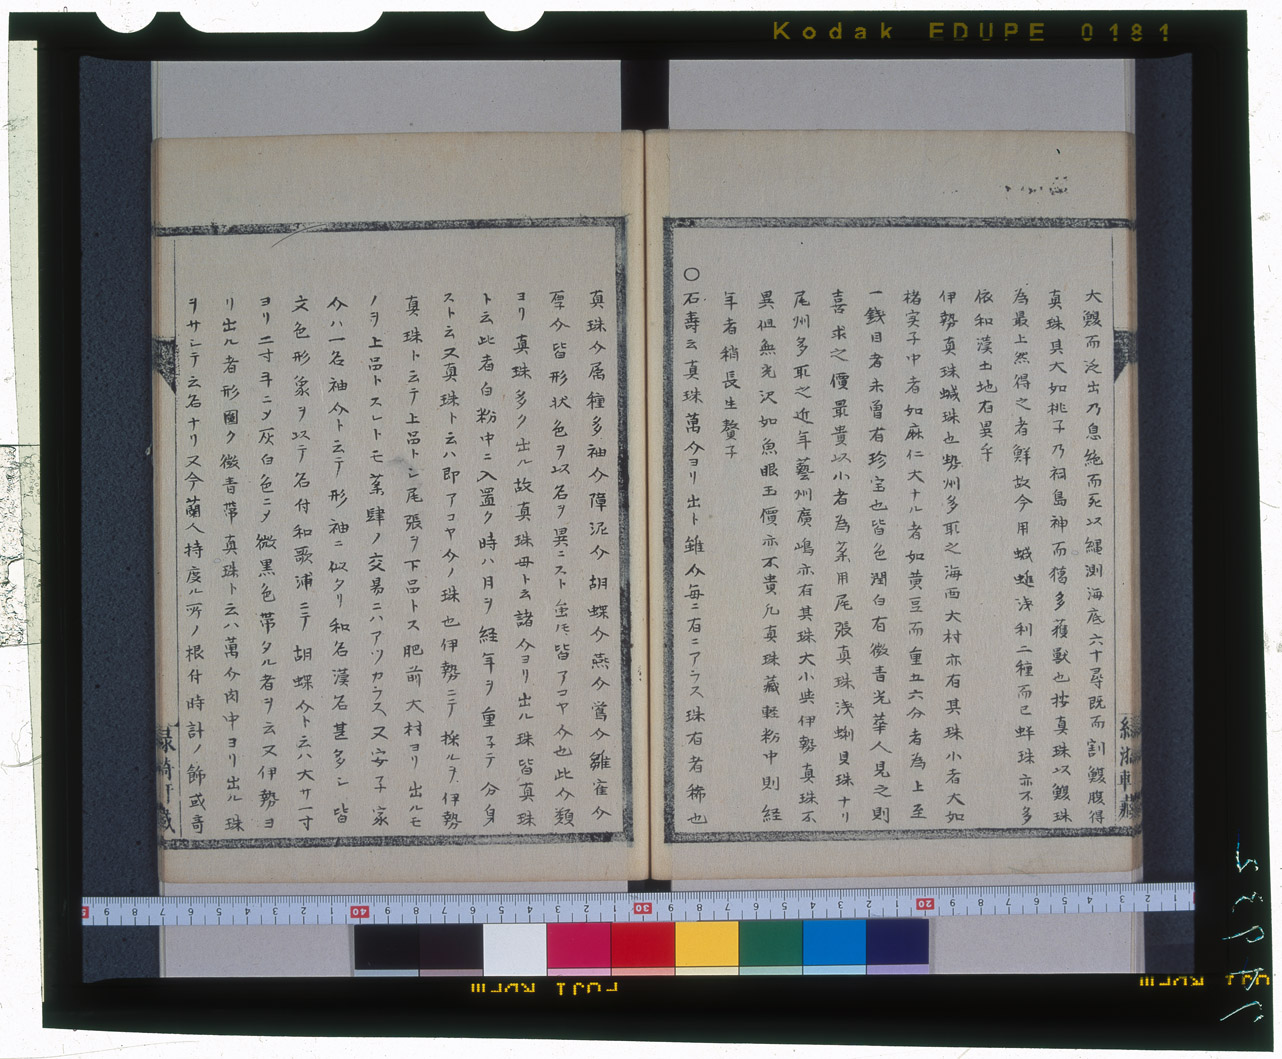 Kodak EDUPE 0181
大鰒而泛出乃息絶而死以縄測海底六十尋既而割鰒腹得
真珠其大如桃子乃祠島神而猎多獲獣也按真珠以鰒珠
為最上然得之者鮮故今用蛾蚫浅利二種而已蚌珠亦不多
依和漢土地有異乎
伊勢真珠蛾珠也勢州多取之海西大村亦有其珠小者大如
楮实子中者如麻仁大ナル者如黄豆而重五六分者為上至
一銭目者未曽有珍宝也皆色潤白有微青光華人見之則
喜求之價最貴以小者為薬用尾張真珠浅蜊貝珠ナリ
尾州多取之近年藝州廣嶋亦有其珠大小與伊勢真珠不
異但無光沢如魚眼玉價亦不貴凡真珠藏軽粉中則経
年者稍長生贅子
○石壽云真珠萬介ヨリ出ト雖介毎ニ有ニアラス珠有者稀也
真珠介属種多袖介障泥介胡蝶介燕介鴬介雛雀介
厚介皆形状色ヲ以名ヲ異ニスト雖𪜈皆アコヤ介也此介類
ヨリ真珠多ク出ル故真珠母ト云諸介ヨリ出ル珠皆真珠
ト云此者白粉中ニ入置ク時ハ月ヲ経年ヲ重子テ分身
スト云又真珠ト云ハ即アコヤ介ノ珠也伊勢ニテ採ルヲ伊勢
真珠ト云テ上品トシ尾張ヲ下品トス肥前大村ヨリ出ルモ
ノヲ上品トスレトモ薬肆ノ交易ニハアツカラス又安子家
介ハ一名袖介ト云テ形袖ニ似タリ和名漢名甚多シ皆
文色形象ヲ以テ名付和歌浦ニテ胡蝶介ト云ハ大サ一寸
ヨリ二寸半ニメ灰白色ニメ微黒色帯タル者ヲ云又伊勢ヨ
リ出ル者形圓ク微青帯真珠ト云ハ萬介肉中ヨリ出ル珠
ヲサシテ云名ナリ又今蘭人持度ル所ノ根付時計ノ飾或奇